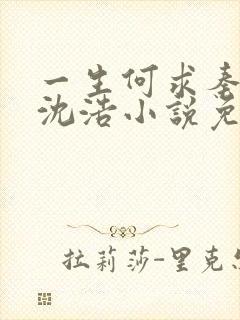 一生何求秦
沈浩小說免
拉莉莎-里克